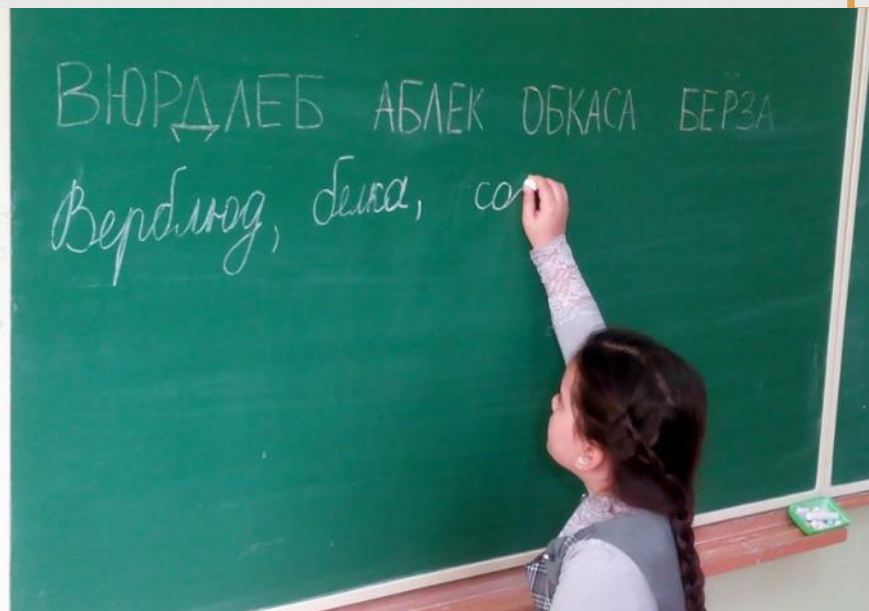 ВЮРДЛЕБ АБЛЕК ОБКАСА БЕРЗА
Верблюд, белка, со